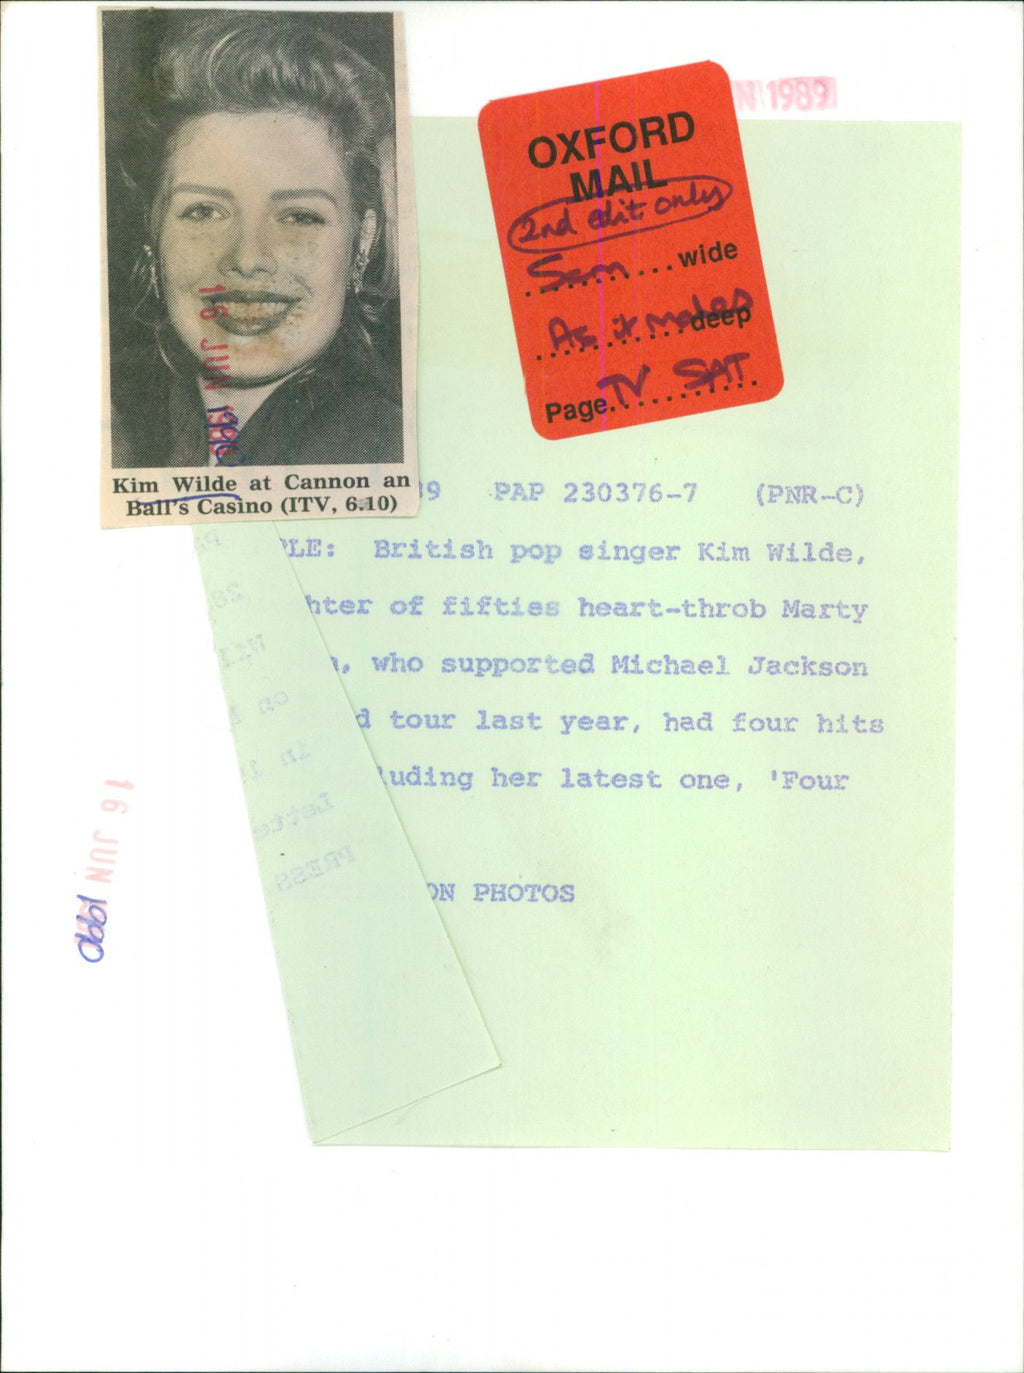 N 1989
OXFORD
MAIL
2nd edit only
5cm ........ wide
As it makes deep
Page TV SAT
16 JUN 1990
Kim Wilde at Cannon an
Ball's Casino (ITV, 6.10)
89 PAP 230376-7 (PNR-C)
PLE: British pop singer Kim Wilde,
hter of fifties heart-throb Marty
, who supported Michael Jackson
d tour last year, had four hits
luding her latest one, 'Four
ON PHOTOS
16 JUN 1990